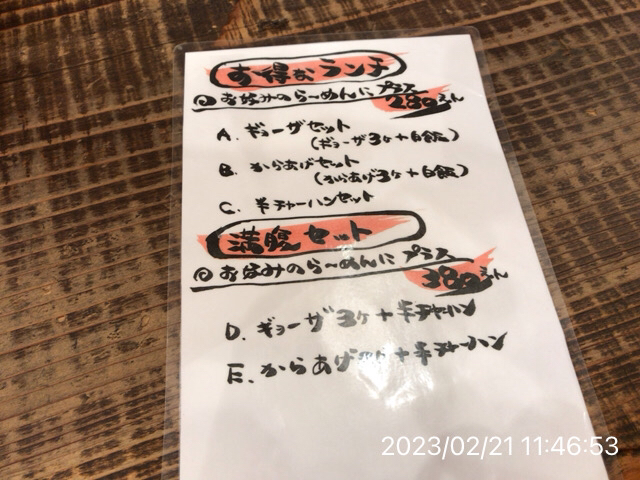 お得なランチ
お好みのらーめんに プラス
280えん
A. ギョーザセット
(ギョーザ3ヶ+白飯)
B. からあげセット
(からあげ3ヶ+白飯)
C. 半チャーハンセット
満腹セット
お好みのらーめんに プラス
えん
D. ギョーザ3ヶ+半チャーハン
E. からあげ +半チャーハン
2023/02/21 11:46:53